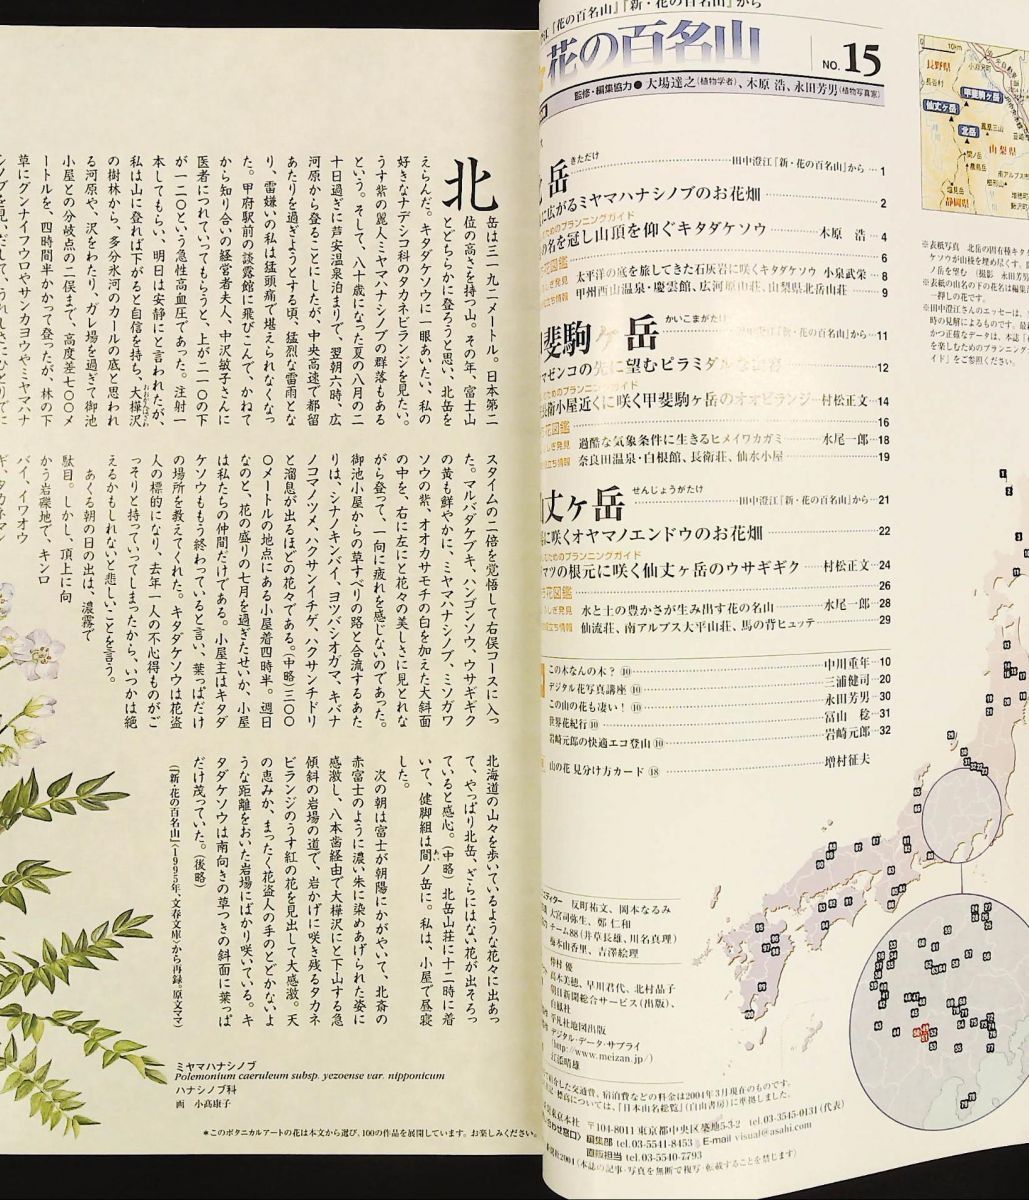 北
岳は三一九二メートル。日本第二
位の高さを持つ山。その年、富士山
とどちらかに登ろうと思い、北岳を
えらんだ。キタダケソウに一眼あいたい、私の
好きなナデシコ科のタカネビランジを見たい。
うす紫の麗人ミヤマハナシノブの群落もある
という。そして、八十歳になった夏の八月の二
十日過ぎに芦安温泉泊まりで、翌朝六時、広
河原から登ることにしたが、中央高速で都留
あたりを過ぎようとする頃、猛烈な雷雨とな
り、雷嫌いの私は猛頭痛で堪えられなくなっ
た。甲府駅前の談露館に飛びこんで、かねて
から知り合いの経営者夫人、中沢敏子さんに
医者につれていってもらうと、上が二一〇の下
が一二〇という急性高血圧であった。注射一
本してもらい、明日は安静にと言われたが、
私は山に登れば下がると自信を持ち、大樺沢
の樹林から、多分氷河のカールの底と思われ
る河原や、沢をわたり、ガレ場を過ぎて御池
小屋との分岐点の二俣まで、高度差七〇〇メ
ートルを、四時間半かかって登ったが、林の下
草にグンナイフウロやサンカヨウやミヤマハナ
シノブを見いだして、うれしさにひとりでに
スタイムの二倍を覚悟して右俣コースに入っ
た。マルバダケブキ、ハンゴンソウ、ウサギギク
の黄も鮮やかに、ミヤマハナシノブ、ミソガワ
ソウの紫、オオカサモチの白を加えた大斜面
の中を、右に左にと花々の美しさに見とれな
がら登って、一向に疲れを感じないのであった。
御池小屋からの草すべりの路と合流するあた
りは、シナノキンバイ、ヨツバシオガマ、キバナ
ノコマノツメ、ハクサンイチゲ、ハクサンチドリ
と溜息が出るほどの花々である。(中略)三〇〇
〇メートルの地点にある小屋着四時半。週日
なのと、花の盛りの七月を過ぎたせいか、小屋
は私たちの仲間だけである。小屋主はキタダ
ケソウももう終わっていると言い、葉っぱだけ
の場所を教えてくれた。キタダケソウは花盗
人の標的になり、去年一人の不心得ものがご
っそりと持っていってしまったから、いつかは絶
えるかもしれないと悲しいことを言う。
あくる朝の日の出は、濃霧で
駄目。しかし、頂上に向
かう岩礫地で、キンロ
バイ、イワオウ
ギ、タカネマン
北海道の山々を歩いているような花々に出あっ
て、やっぱり北岳、ざらにはない花が出そろっ
ていると感心。(中略) 北岳山荘に十二時に着
いて、健脚組は間ノ岳に。私は、小屋で昼寝
した。
次の朝は富士が朝陽にかがやいて、北斎の
赤富士のように濃い朱に染めあげられた姿に
感激し、八本歯経由で大樺沢にと下山する急
傾斜の岩場の道で、岩かげに咲き残るタカネ
ビランジのうす紅の花を見出して大感激。天
の恵みか、まったく花盗人の手のとどかないよ
うな距離をおいた岩場にばかり咲いている。キ
タダケソウは南向きの草つきの斜面に葉っぱ
だけ茂っていた。(後略)
(『新・花の百名山』〈1995年、文春文庫〉から再録。原文ママ)
ミヤマハナシノブ
Polemonium caeruleum subsp. yezoense var. nipponicum
ハナシノブ科
画 小高康子
*このボタニカルアートの花は本文から選び、100の作品を展開しています。お楽しみください。
『花の百名山』『新・花の百名山』から
花の百名山
NO. 15
監修・編集協力● 大場達之(植物学者)、木原 浩、永田芳男(植物写真家)
岳 きただけ
田中澄江『新・花の百名山』から 1
に広がるミヤマハナシノブのお花畑 2
のためのプランニングガイド
の名を冠し山頂を仰ぐキタダケソウ 木原 浩 4
花図鑑 6
しぎ発見 太平洋の底を旅してきた石灰岩に咲くキタダケソウ 小泉武栄 8
役立ち情報 甲州西山温泉・慶雲館、広河原山荘、山梨県北岳山荘 9
甲斐駒ヶ岳 かいこまがたけ
田中澄江『新・花の百名山』から 11
マゼンコの先に望むピラミダルな山容 12
のためのプランニングガイド
長衛小屋近くに咲く甲斐駒ヶ岳のオオビランジ 村松正文 14
花図鑑 16
しぎ発見 過酷な気象条件に生きるヒメイワカガミ 水尾一郎 18
役立ち情報 奈良田温泉・白根館、長衛荘、仙水小屋 19
仙丈ヶ岳 せんじょうがたけ
田中澄江『新・花の百名山』から 21
に咲くオヤマノエンドウのお花畑 22
のためのプランニングガイド
マツの根元に咲く仙丈ヶ岳のウサギギク 村松正文 24
花図鑑 26
しぎ発見 水と土の豊かさが生み出す花の名山 水尾一郎 28
役立ち情報 仙流荘、南アルプス大平山荘、馬の背ヒュッテ 29
この木なんの木?⑩ 中川重年 10
デジタル花写真講座⑩ 三浦健司 20
この山の花も凄い!⑩ 永田芳男 30
世界花紀行⑩ 冨山 稔 31
岩崎元郎の快適エコ登山⑩ 岩崎元郎 32
山の花 見分け方カード⑱ 増村征夫
ディター 反町祐文、岡本なるみ
大宮司弥生、鄭 仁和
チーム88(井草長雄、川名真理)
梅本由香里、吉澤絵理
仲村 優
高木美穂、早川君代、北村晶子
朝日新聞総合サービス(出版)、
自紙社
平凡社地図出版
デジタル・データ・サプライ
(http://www.meizan.jp/)
江添晴雄
紹介した交通費、宿泊費などの料金は2004年3月現在のものです。
標高については、『日本山名総覧』(白山書房)に準拠しました。
東京本社 〒104-8011 東京都中央区築地5-3-2 tel.03-3545-0131(代表)
合わせ窓口〉 編集部 tel.03-5541-8453 E-mail visual@asahi.com
直販担当 tel.03-5540-7793
2004(本誌の記事・写真を無断で複写・転載することを禁じます)
0 10km
長野県
甲斐駒ヶ岳
仙丈ヶ岳
北岳
鳳凰三山
山梨県
間ノ岳
塩見岳
静岡県
*表紙写真 北岳の固有種キタダ